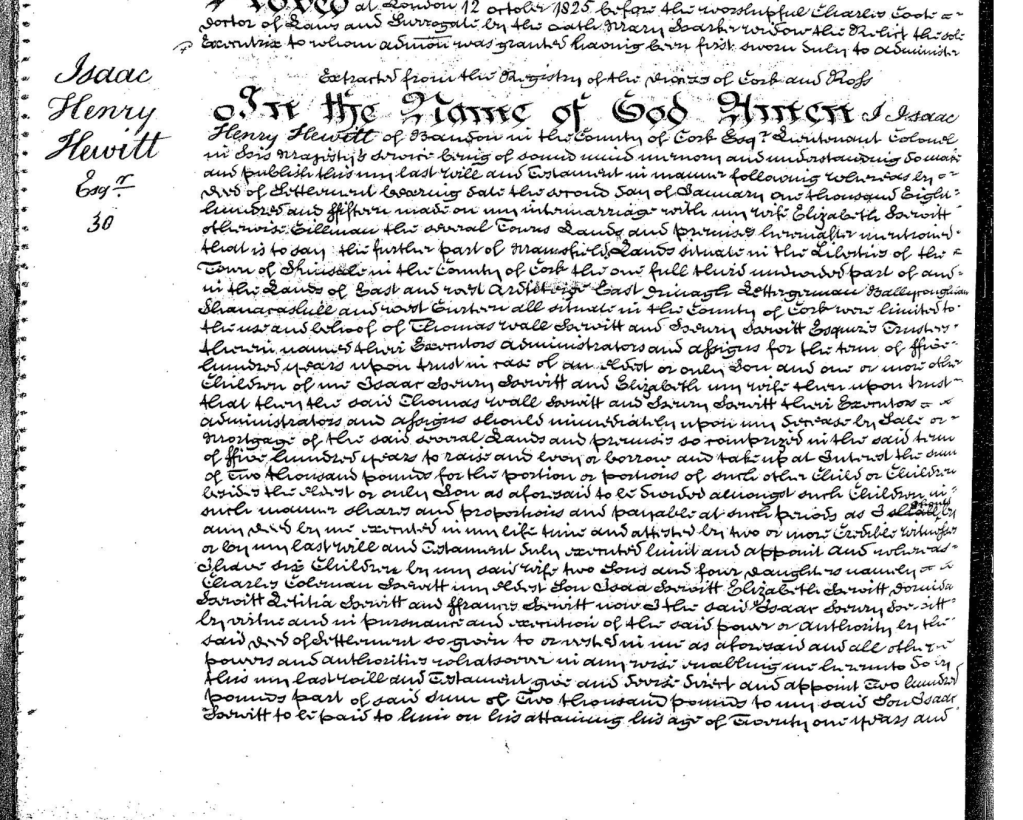 Proved at London 12 october 1825 before the worshipful Charles Coote
doctor of Laws and Surrogate by the oath Mary Barker widow the Relict the sole
Executrix to whom admon was granted having been first sworn duly to administer
Isaac
Henry
Hewitt
Esqr
30
Extracted from the Registry of the dioces of Cork and Ross
In the Name of God Amen I Isaac
Henry Hewett of Bandon in the County of Cork Esqr Lieutenant Colonel
in His Majesty's service being of sound mind memory and understanding do make
and publish this my last will and Testament in manner following whereas by
deed of Settlement bearing date the second day of January one thousand Eight
hundred and ffifteen made on my intermarriage with my wife Elizabeth Hewitt
otherwise Gillman the several Towns Lands and premises hereinafter mentioned
that is to say the further part of Mansfield Lands situate in the Liberties of the
Town of Kinsale in the County of Cork the one full third undivided part of and
in the Lands of East and west East Drinagh Lettergorman
and west all situate in the County of Cork were limited to
the use and behoof of Thomas wall Hewitt and Henry Hewitt Esquires Trustees
therein named their Executors administrators and assigns for the term of ffive
hundred years upon trust in case of an eldest or only Son and one or more other
Children of me Isaac Henry Hewitt and Elizabeth my wife then upon trust
that they the said Thomas wall Hewitt and Henry Hewitt their Executors
administrators and assigns should immediately upon my decease by Sale or
Mortgage of the said several Lands and premises so comprized in the said term
of ffive hundred years to raise and levy or borrow and take up at Interest the sum
of Two thousand pounds for the portion or portions of such other Child or Children
besides the eldest or only Son as aforesaid to be divided amongst such Children in
such manner shares and proportions and payable at such periods as I should by
any deed by me executed in my life time and attested by two or more Credible witnesses
or by my last will and Testament duly executed limit and appoint and whereas
I have six Children by my said wife two Sons and four daughters namely
Charles Coleman Hewitt my eldest Son Isaac Hewitt Elizabeth Hewitt
Hewitt Letitia Hewitt and ffrances Hewitt now I the said Isaac Henry Hewitt
by virtue and in pursuance and execution of the said power or authority by the
said deed of Settlement so given to or vested in me as aforesaid and all other
powers and authorities whatsoever in any wise enabling me hereunto do by
this my last will and Testament give and devise direct and appoint Two hundred
pounds part of said sum of Two thousand pounds to my said Son Isaac
Hewitt to be paid to him on his attaining his age of Twenty one years and